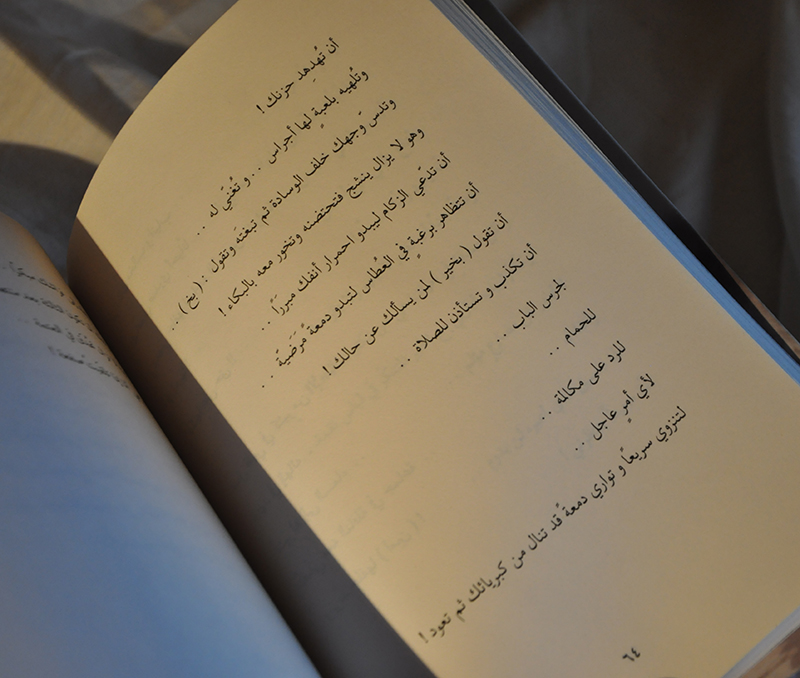 أن تُهدهِد حزنك !
وتُلهيه بلعبة لها أجراس .. و تُغنّي له ..
وتدسّ وَجهك خلف الوسادة ثم تبغتَه وتقول : ( بخ ) ..
وهو لا يزال ينشج فتحتضنه وتخور معه بالبكاء !
أن تدعّي الزكام ليبدو احمرار أنفك مبررًا ..
أن تتظاهر برغبةٍ في العُطاس لتبدو دمعةً مَرَضيّة ..
أن تقول ( بخير ) لمن يسألك عن حالك !
أن تكذب و تستأذن للصلاة ..
لجرس الباب ..
للحمام ..
للرد على مكالمة ..
لأي أمرٍ عاجل ..
لتنزوي سريعًا و تواري دمعةً قد تنال من كبريائك ثم تعود !
٦٤